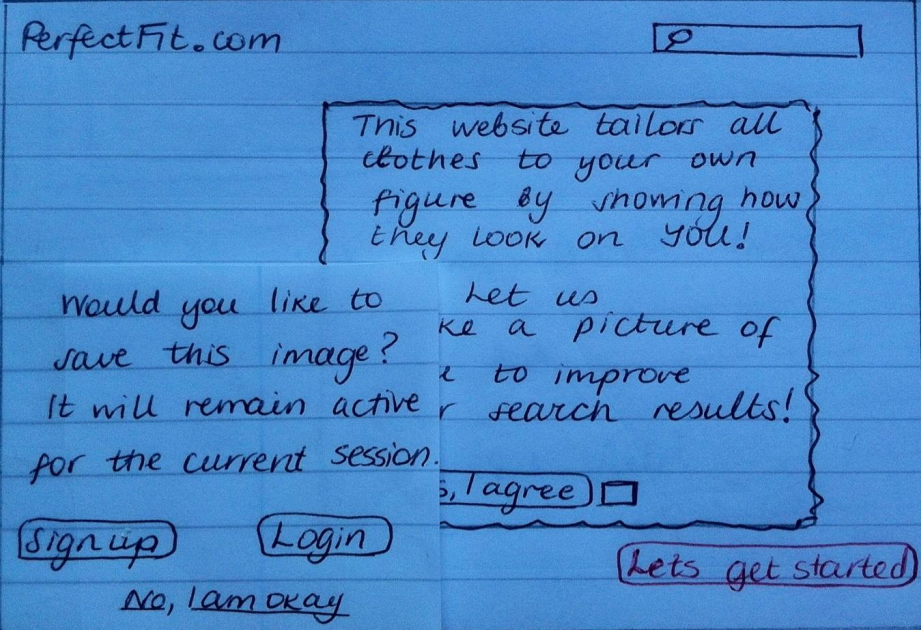 PerfectFit.com
This website tailors all
clothes to your own
figure by showing how
they look on YOU!
Let us
ke a picture of
e to improve
r search results!
s, I agree
Lets get started
Would you like to
save this image?
It will remain active
for the current session.
Sign up
Login
No, I am okay